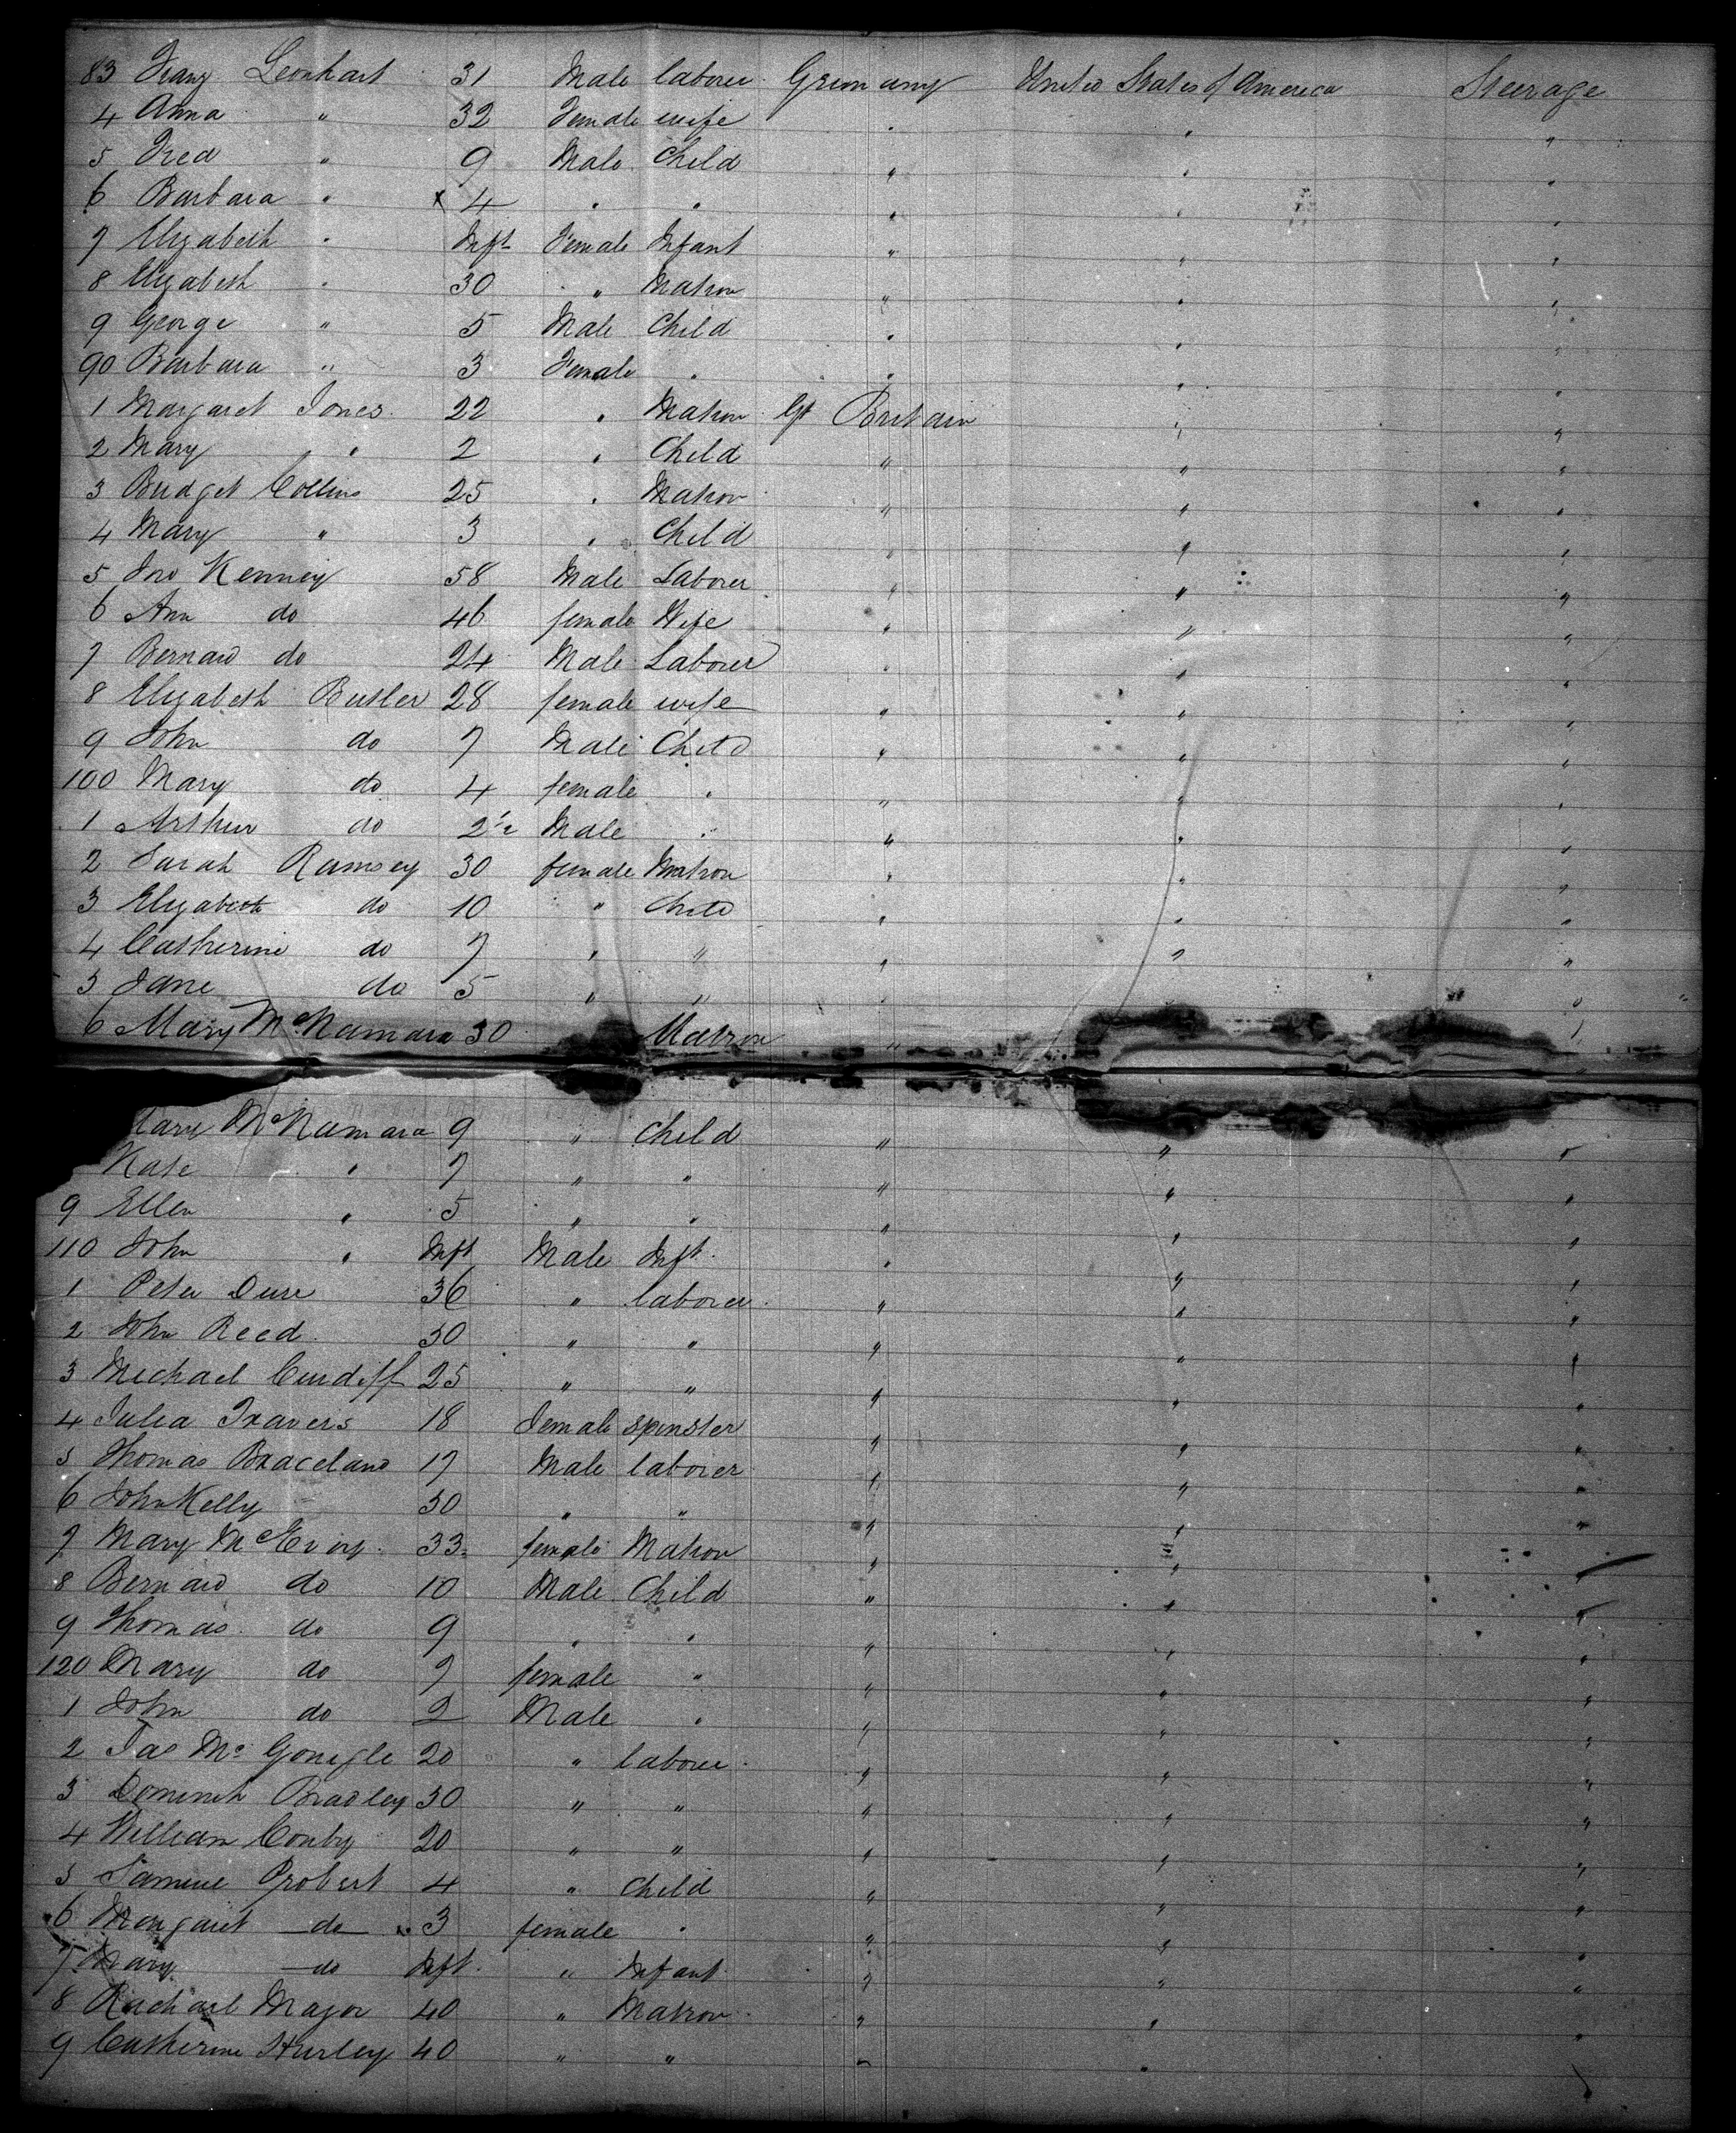 83 Franz Leonhart 31 Male laborer Grimamy United States of America Steerage
4 Anna " 32 Female wife " " "
5 Fred " 9 Male Child " " "
6 Barbara " x 4 " " " " "
7 Elizabeth " Inft Female Infant " " "
8 Elizabeth " 30 " Matron " " "
9 George " 5 Male Child " " "
90 Barbara " 3 Female " " " "
1 Margaret Jones 22 " Matron Gt Britain " "
2 Mary " 2 " Child " " "
3 Bridget Collins 25 " Matron " " "
4 Mary " 3 " Child " " "
5 Jno Kenney 58 Male Laborer " " "
6 Ann do 46 female Wife " " "
7 Bernard do 24 Male Laborer " " "
8 Elizabeth Butler 28 female wife " " "
9 John do 7 Male Child " " "
100 Mary do 4 female " " " "
1 Arthur do 2½ Male " " " "
2 Sarah Ramsey 30 female Matron " " "
3 Elizabeth do 10 " Child " " "
4 Catherine do 7 " " " " "
5 Jane do 5 " " " "
6 Mary McNamara 30 Matron " "
Mary McNamara 9 " Child " " "
Kate " 7 " " " " "
9 Ellen " 5 " " " " "
110 John " Inft Male Inft. " " "
1 Peter Dure 36 " laborer " " "
2 John Reed 30 " " " " "
3 Michael Cundiff 25 " " " " "
4 Julia Travers 18 Female spinster " " "
5 Thomas Braceland 17 Male laborer " " "
6 John Kelly 30 " " " " "
7 Mary McEvoy 33 female Matron " " "
8 Bernard do 10 Male Child " " "
9 Thomas do 9 " " " " "
120 Mary do 7 female " " " "
1 John do 2 Male " " " "
2 Jas Mc Gonigle 20 " laborer " " "
3 Dominick Bradley 30 " " " " "
4 William Conby 20 " " " " "
5 Samuel Probert 4 " Child " " "
6 Margaret do 3 female " " " "
7 Mary do Inft. " Infant " " "
8 Rachael Major 40 " Matron " " "
9 Catherine Hurley 40 " " " " "